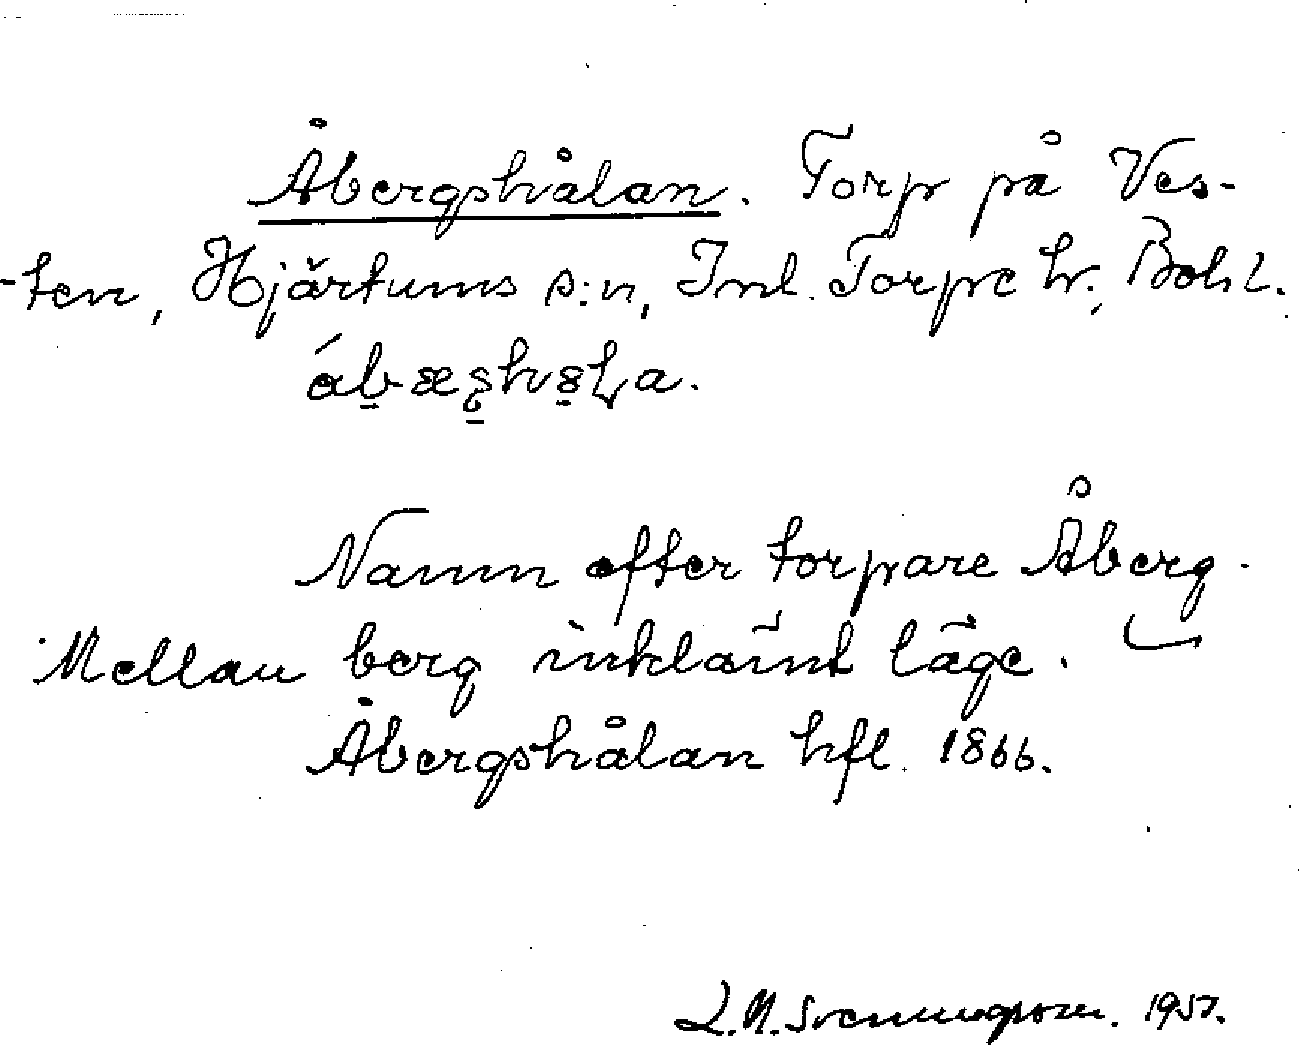 Åbergshålan. Torp på Ves-
-ten, Hjärtums s:n, Inl. Torpe hr., Bohl.
Namn efter torpare Åberg.
Mellan berg inklämt läge.
Åbergshålan hfl. 1866.
1957.